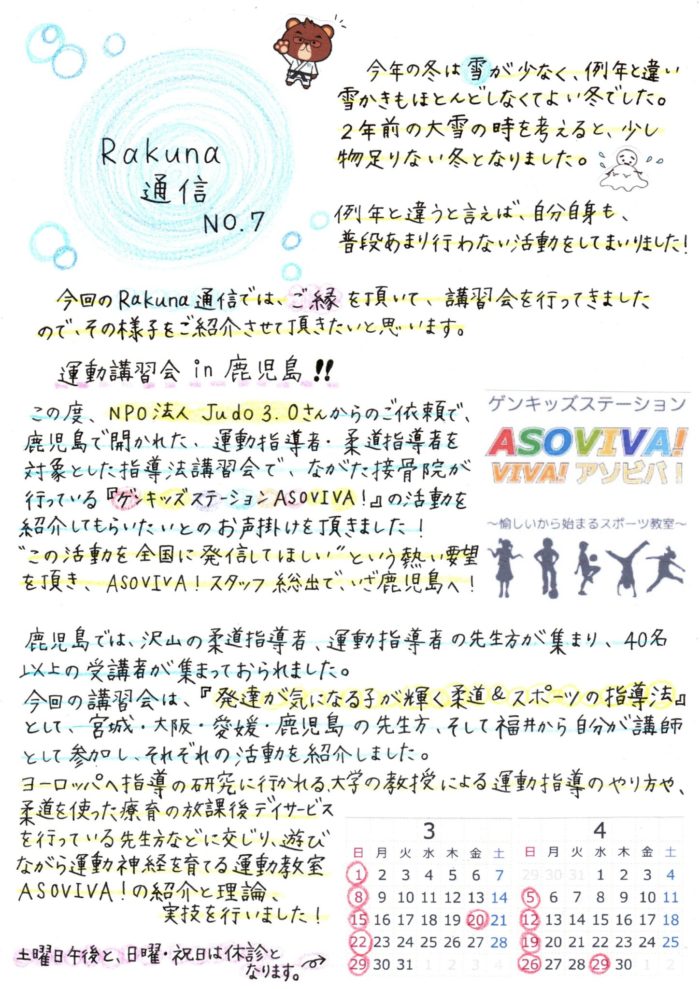 Rakuna
通信
NO.7
今年の冬は雪が少なく、例年と違い
雪かきもほとんどしなくてよい冬でした。
2年前の大雪の時を考えると、少し
物足りない冬となりました。
例年と違うと言えば、自分自身も、
普段あまり行わない活動をしてまいりました!
今回のRakuna通信では、ご縁を頂いて、講習会を行ってきました
ので、その様子をご紹介させて頂きたいと思います。
運動講習会 in 鹿児島!!
この度、NPO法人 Judo3.0さんからのご依頼で、
鹿児島で開かれた、運動指導者・柔道指導者を
対象とした指導法講習会で、ながた接骨院が
行っている『ゲンキッズステーションASOVIVA!』の活動を
紹介してもらいたいとのお声掛けを頂きました!
"この活動を全国に発信してほしい"という熱い要望
を頂き、ASOVIVA!スタッフ総出で、いざ鹿児島へ!
ゲンキッズステーション
ASOVIVA!
VIVA! アソビバ!
〜愉しいから始まるスポーツ教室〜
鹿児島では、沢山の柔道指導者、運動指導者の先生方が集まり、40名
以上の受講者が集まっておられました。
今回の講習会は、『発達が気になる子が輝く柔道&スポーツの指導法』
として、宮城・大阪・愛媛・鹿児島の先生方、そして福井から自分が講師
として参加し、それぞれの活動を紹介しました。
ヨーロッパへ指導の研究に行かれる、大学の教授による運動指導のやり方や、
柔道を使った療育の放課後デイサービス
を行っている先生方などに交じり、遊び
ながら運動神経を育てる運動教室
ASOVIVA!の紹介と理論、
実技を行いました!
土曜日午後と、日曜・祝日は休診と
なります。→
3
日 月 火 水 木 金 土
1 2 3 4 5 6 7
8 9 10 11 12 13 14
15 16 17 18 19 20 21
22 23 24 25 26 27 28
29 30 31 1 2 3 4
4
日 月 火 水 木 金 土
29 30 31 1 2 3 4
5 6 7 8 9 10 11
12 13 14 15 16 17 18
19 20 21 22 23 24 25
26 27 28 29 30 1 2